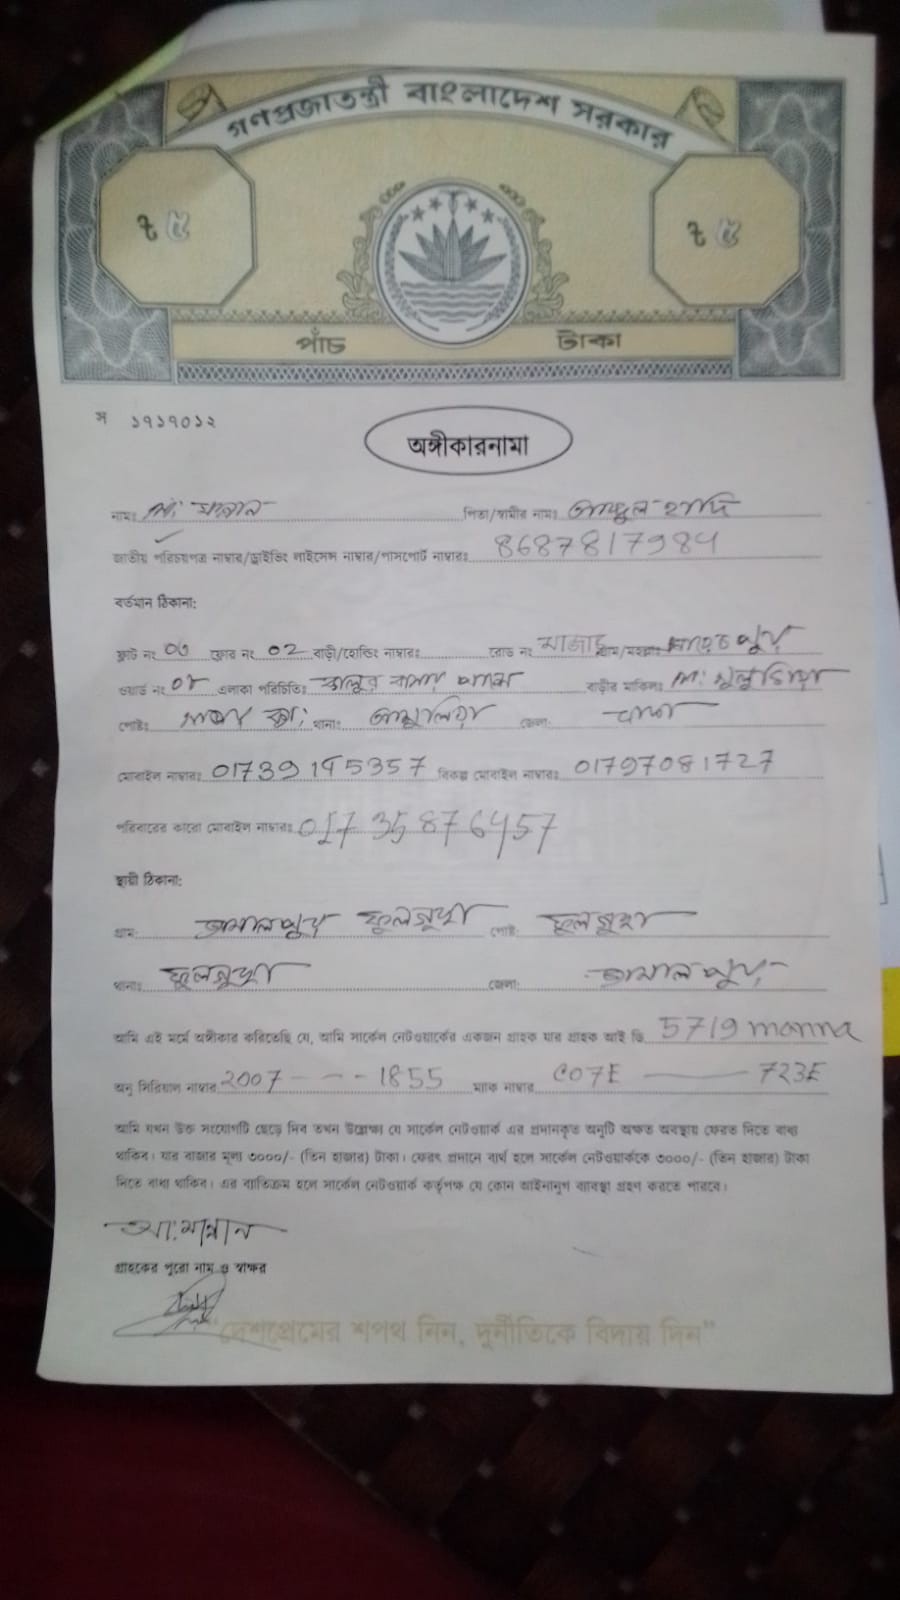 গণপ্রজাতন্ত্রী বাংলাদেশ সরকার
৳ ৫ ৳ ৫
পাঁচ টাকা
স ১৭১৭০১২
অঙ্গীকারনামা
নামঃ মোঃ মান্নান পিতা/স্বামীর নামঃ আব্দুল হাদি
জাতীয় পরিচয়পত্র নাম্বার/ড্রাইভিং লাইসেন্স নাম্বার/পাসপোর্ট নাম্বারঃ 8687817984
বর্তমান ঠিকানা:
ফ্লাট নং ফ্লোর নং 02 বাড়ী/হোল্ডিং নাম্বারঃ রোড নং মাজার গ্রাম/মহল্লাঃ
ওয়ার্ড নং এলাকা পরিচিতিঃ বাড়ীর মালিকঃ
পোষ্টঃ থানাঃ আশুলিয়া জেলা: ঢাকা
মোবাইল নাম্বারঃ 01739195357 বিকল্প মোবাইল নাম্বারঃ 01797081727
পরিবারের কারো মোবাইল নাম্বারঃ 01735876457
স্থায়ী ঠিকানা:
গ্রাম: জামালপুর পোষ্ট:
থানাঃ জেলা: জামালপুর
আমি এই মর্মে অঙ্গীকার করিতেছি যে, আমি সার্কেল নেটওয়ার্কের একজন গ্রাহক যার গ্রাহক আই ডি 5719 manna
অনু সিরিয়াল নাম্বার 2007 - - - 1855 ম্যাক নাম্বার C07E — 723E
আমি যখন উক্ত সংযোগটি ছেড়ে দিব তখন উল্লেক্ষ্য যে সার্কেল নেটওয়ার্ক এর প্রদানকৃত অনুটি অক্ষত অবস্থায় ফেরত দিতে বাধ্য
থাকিব। যার বাজার মূল্য ৩০০০/- (তিন হাজার) টাকা। ফেরৎ প্রদানে ব্যর্থ হলে সার্কেল নেটওয়ার্ককে ৩০০০/- (তিন হাজার) টাকা
দিতে বাধ্য থাকিব। এর ব্যতিক্রম হলে সার্কেল নেটওয়ার্ক কর্তৃপক্ষ যে কোন আইনানুগ ব্যাবস্থা গ্রহণ করতে পারবে।
আঃ মান্নান
গ্রাহকের পুরো নাম ও স্বাক্ষর
"দেশপ্রেমের শপথ নিন, দুর্নীতিকে বিদায় দিন"